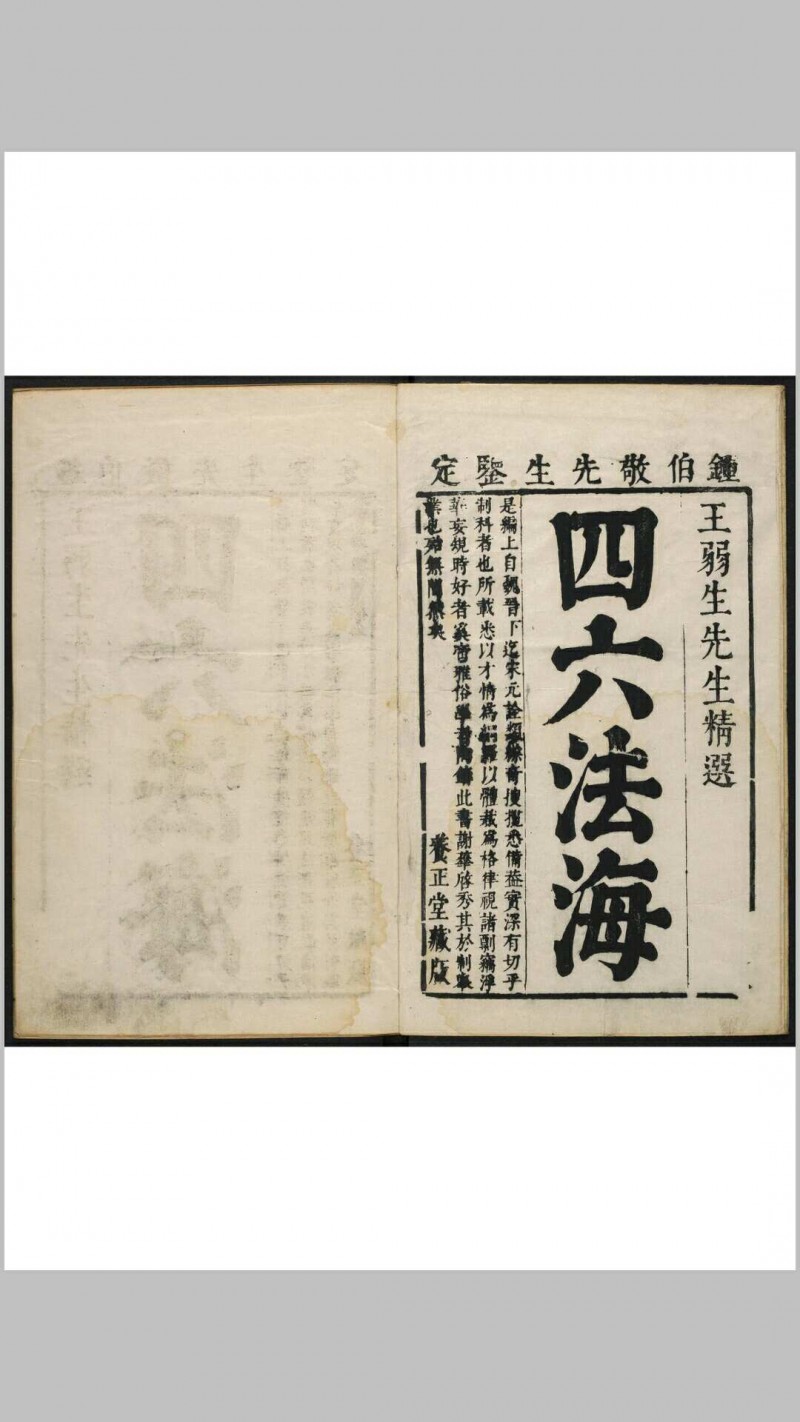 鍾伯敬先生鍳定
王弱生先生精選
四六法海
是編上自魏晉下迄宋元詮類綜奇搜攬悉備葢實深有切乎
制科者也所載悉以才情爲網羅以體裁爲格律視諸剽竊浮
華妄規時好者奚啻雅俗此書謝華啓秀其於制舉
業也殆無閒然矣
養正堂藏版